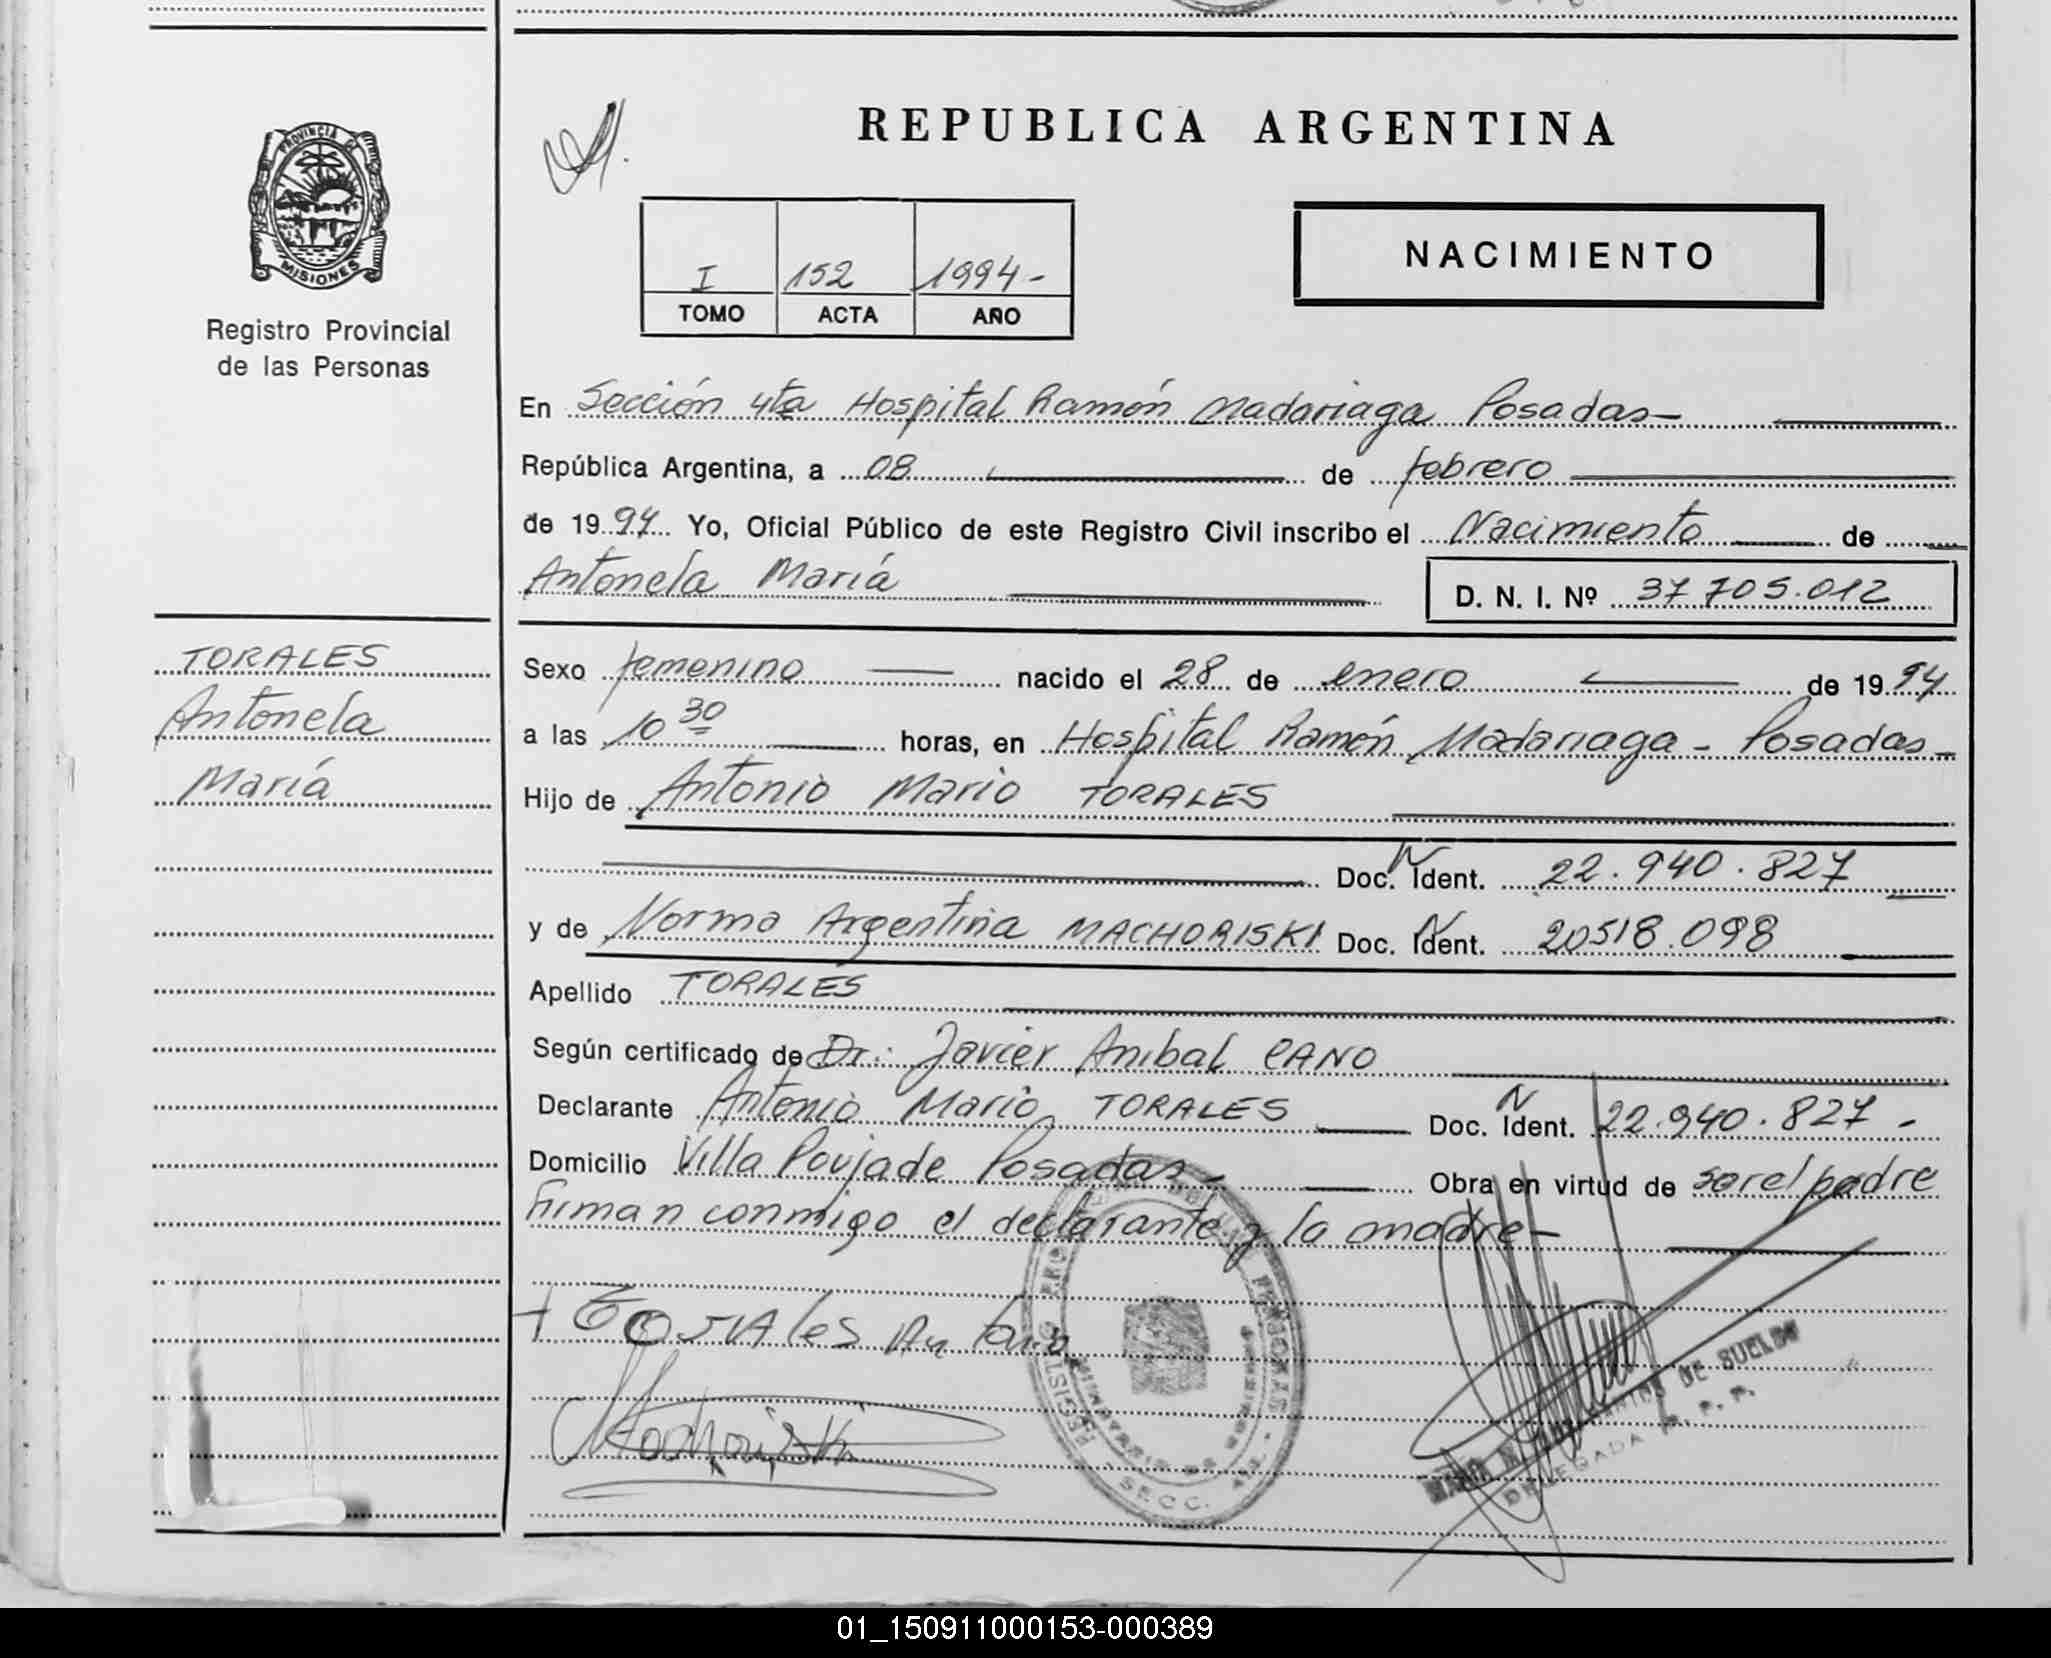 REPUBLICA ARGENTINA
PROVINCIA DE
MISIONES
Registro Provincial
de las Personas
I 152 1994-
TOMO ACTA AÑO
NACIMIENTO
En Sección 4ta Hospital Ramón Madariaga Posadas-
República Argentina, a 08 de febrero
de 1994 Yo, Oficial Público de este Registro Civil inscribo el Nacimiento de
Antonela María D. N. I. Nº 37 705.012
TORALES
Antonela
María
Sexo femenino nacido el 28 de enero de 1994
a las 10 30 horas, en Hospital Ramón Madariaga - Posadas-
Hijo de Antonio Mario TORALES
Doc. N Ident. 22.940.827
y de Norma Argentina MACHORISKI Doc. N Ident. 20518.098
Apellido TORALES
Según certificado de Dr.: Javier Anibal CANO
Declarante Antonio Mario TORALES Doc. N Ident. 22.940.827-
Domicilio Villa Poujade Posadas- Obra en virtud de ser el padre
Firman conmigo el declarante y la madre-
DE SUELDO
DELEGADA R. P. P.
SECC. 4ta.
01_150911000153-000389